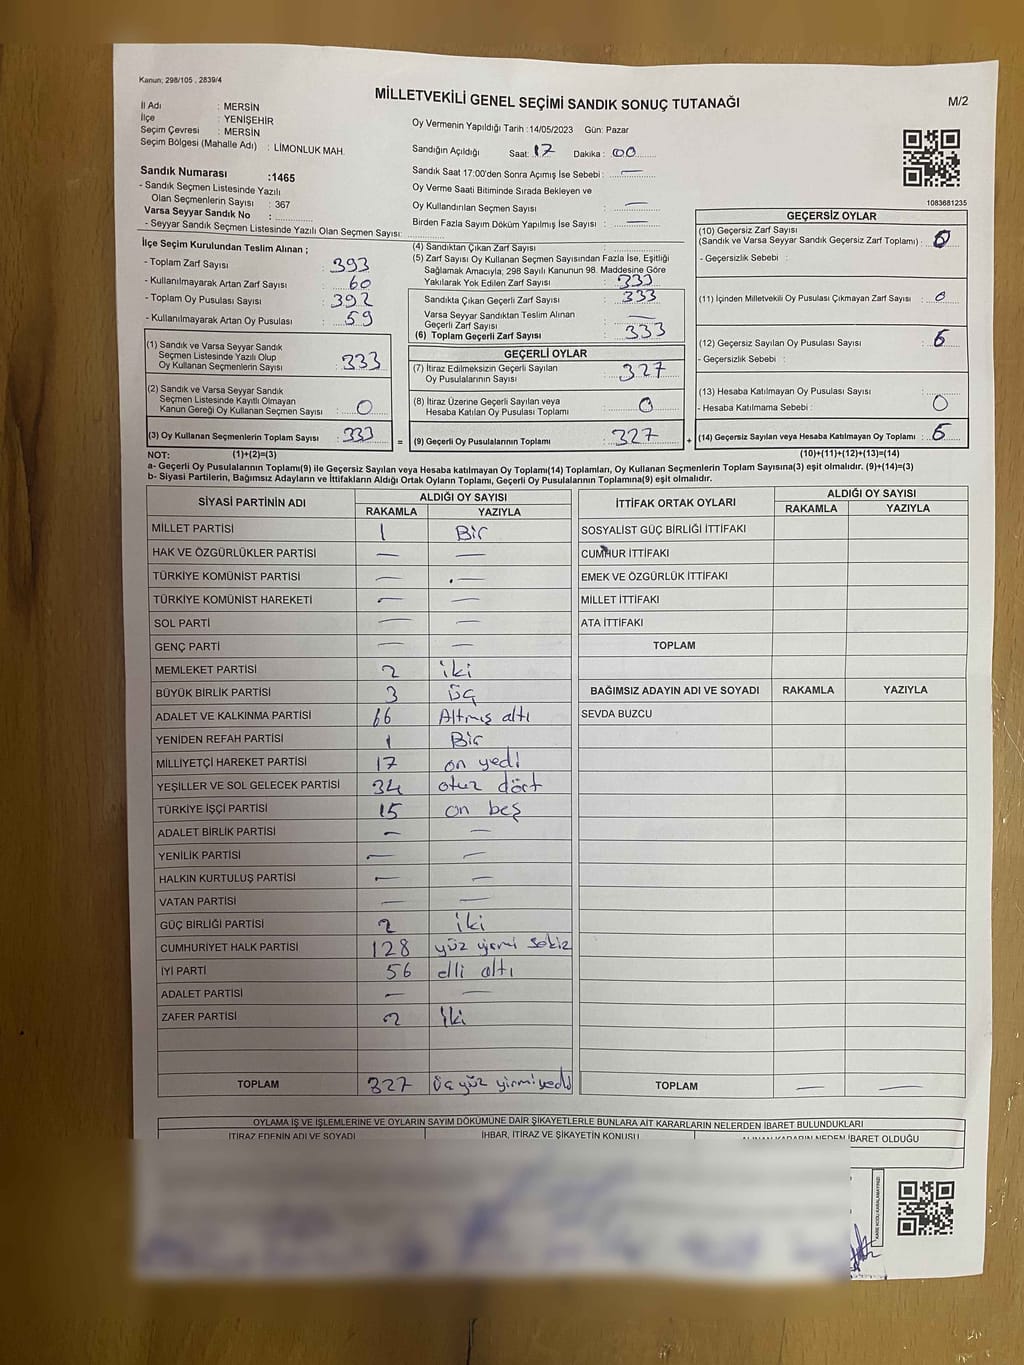 Kanun; 298/105 , 2839/4
MİLLETVEKİLİ GENEL SEÇİMİ SANDIK SONUÇ TUTANAĞI
M/2
İl Adı : MERSİN
İlçe : YENİŞEHİR
Seçim Çevresi : MERSİN
Seçim Bölgesi (Mahalle Adı) : LİMONLUK MAH.
Sandık Numarası :1465
- Sandık Seçmen Listesinde Yazılı
Olan Seçmenlerin Sayısı : 367
Varsa Seyyar Sandık No :
- Seyyar Sandık Seçmen Listesinde Yazılı Olan Seçmen Sayısı:
Oy Vermenin Yapıldığı Tarih :14/05/2023 Gün: Pazar
Sandığın Açıldığı Saat: 17 Dakika : 00
Sandık Saat 17:00'den Sonra Açımış İse Sebebi : —
Oy Verme Saati Bitiminde Sırada Bekleyen ve
Oy Kullandırılan Seçmen Sayısı : —
Birden Fazla Sayım Döküm Yapılmış İse Sayısı : —
1083681235
İlçe Seçim Kurulundan Teslim Alınan ;
- Toplam Zarf Sayısı : 393
- Kullanılmayarak Artan Zarf Sayısı : 60
- Toplam Oy Pusulası Sayısı : 392
- Kullanılmayarak Artan Oy Pusulası : 59
(1) Sandık ve Varsa Seyyar Sandık
Seçmen Listesinde Yazılı Olup
Oy Kullanan Seçmenlerin Sayısı : 333
(2) Sandık ve Varsa Seyyar Sandık
Seçmen Listesinde Kayıtlı Olmayan
Kanun Gereği Oy Kullanan Seçmen Sayısı : 0
(3) Oy Kullanan Seçmenlerin Toplam Sayısı : 333
(4) Sandıktan Çıkan Zarf Sayısı :
(5) Zarf Sayısı Oy Kullanan Seçmen Sayısından Fazla İse, Eşitliği
Sağlamak Amacıyla; 298 Sayılı Kanunun 98. Maddesine Göre
Yakılarak Yok Edilen Zarf Sayısı : 333
Sandıkta Çıkan Geçerli Zarf Sayısı : 333
Varsa Seyyar Sandıktan Teslim Alınan
Geçerli Zarf Sayısı : —
(6) Toplam Geçerli Zarf Sayısı : 333
GEÇERLİ OYLAR
(7) İtiraz Edilmeksizin Geçerli Sayılan
Oy Pusulalarının Sayısı : 327
(8) İtiraz Üzerine Geçerli Sayılan veya
Hesaba Katılan Oy Pusulası Toplamı : 0
= (9) Geçerli Oy Pusulalarının Toplamı : 327 +
GEÇERSİZ OYLAR
(10) Geçersiz Zarf Sayısı
(Sandık ve Varsa Seyyar Sandık Geçersiz Zarf Toplamı) : 0
- Geçersizlik Sebebi :
(11) İçinden Milletvekili Oy Pusulası Çıkmayan Zarf Sayısı : 0
(12) Geçersiz Sayılan Oy Pusulası Sayısı : 6
- Geçersizlik Sebebi :
(13) Hesaba Katılmayan Oy Pusulası Sayısı : 0
- Hesaba Katılmama Sebebi :
(14) Geçersiz Sayılan veya Hesaba Katılmayan Oy Toplamı : 6
NOT: (1)+(2)=(3) (10)+(11)+(12)+(13)=(14)
a- Geçerli Oy Pusulalarının Toplamı(9) ile Geçersiz Sayılan veya Hesaba katılmayan Oy Toplamı(14) Toplamları, Oy Kullanan Seçmenlerin Toplam Sayısına(3) eşit olmalıdır. (9)+(14)=(3)
b- Siyasi Partilerin, Bağımsız Adayların ve İttifakların Aldığı Ortak Oyların Toplamı, Geçerli Oy Pusulalarının Toplamına(9) eşit olmalıdır.
SİYASİ PARTİNİN ADI ALDIĞI OY SAYISI
RAKAMLA YAZIYLA
MİLLET PARTİSİ 1 Bir
HAK VE ÖZGÜRLÜKLER PARTİSİ — —
TÜRKİYE KOMÜNİST PARTİSİ — —
TÜRKİYE KOMÜNİST HAREKETİ — —
SOL PARTİ — —
GENÇ PARTİ — —
MEMLEKET PARTİSİ 2 iki
BÜYÜK BİRLİK PARTİSİ 3 üç
ADALET VE KALKINMA PARTİSİ 66 Altmış altı
YENİDEN REFAH PARTİSİ 1 Bir
MİLLİYETÇİ HAREKET PARTİSİ 17 on yedi
YEŞİLLER VE SOL GELECEK PARTİSİ 34 otuz dört
TÜRKİYE İŞÇİ PARTİSİ 15 on beş
ADALET BİRLİK PARTİSİ — —
YENİLİK PARTİSİ — —
HALKIN KURTULUŞ PARTİSİ — —
VATAN PARTİSİ — —
GÜÇ BİRLİĞİ PARTİSİ 2 iki
CUMHURİYET HALK PARTİSİ 128 yüz yirmi sekiz
İYİ PARTİ 56 elli altı
ADALET PARTİSİ — —
ZAFER PARTİSİ 2 iki
TOPLAM 327 üç yüz yirmi yedi
İTTİFAK ORTAK OYLARI ALDIĞI OY SAYISI
RAKAMLA YAZIYLA
SOSYALİST GÜÇ BİRLİĞİ İTTİFAKI
CUMHUR İTTİFAKI
EMEK VE ÖZGÜRLÜK İTTİFAKI
MİLLET İTTİFAKI
ATA İTTİFAKI
TOPLAM
BAĞIMSIZ ADAYIN ADI VE SOYADI RAKAMLA YAZIYLA
SEVDA BUZCU
TOPLAM — —
OYLAMA İŞ VE İŞLEMLERİNE VE OYLARIN SAYIM DÖKÜMÜNE DAİR ŞİKAYETLERLE BUNLARA AİT KARARLARIN NELERDEN İBARET BULUNDUKLARI
İTİRAZ EDENİN ADI VE SOYADI İHBAR, İTİRAZ VE ŞİKAYETİN KONUSU ALINAN KARARIN NEDEN İBARET OLDUĞU